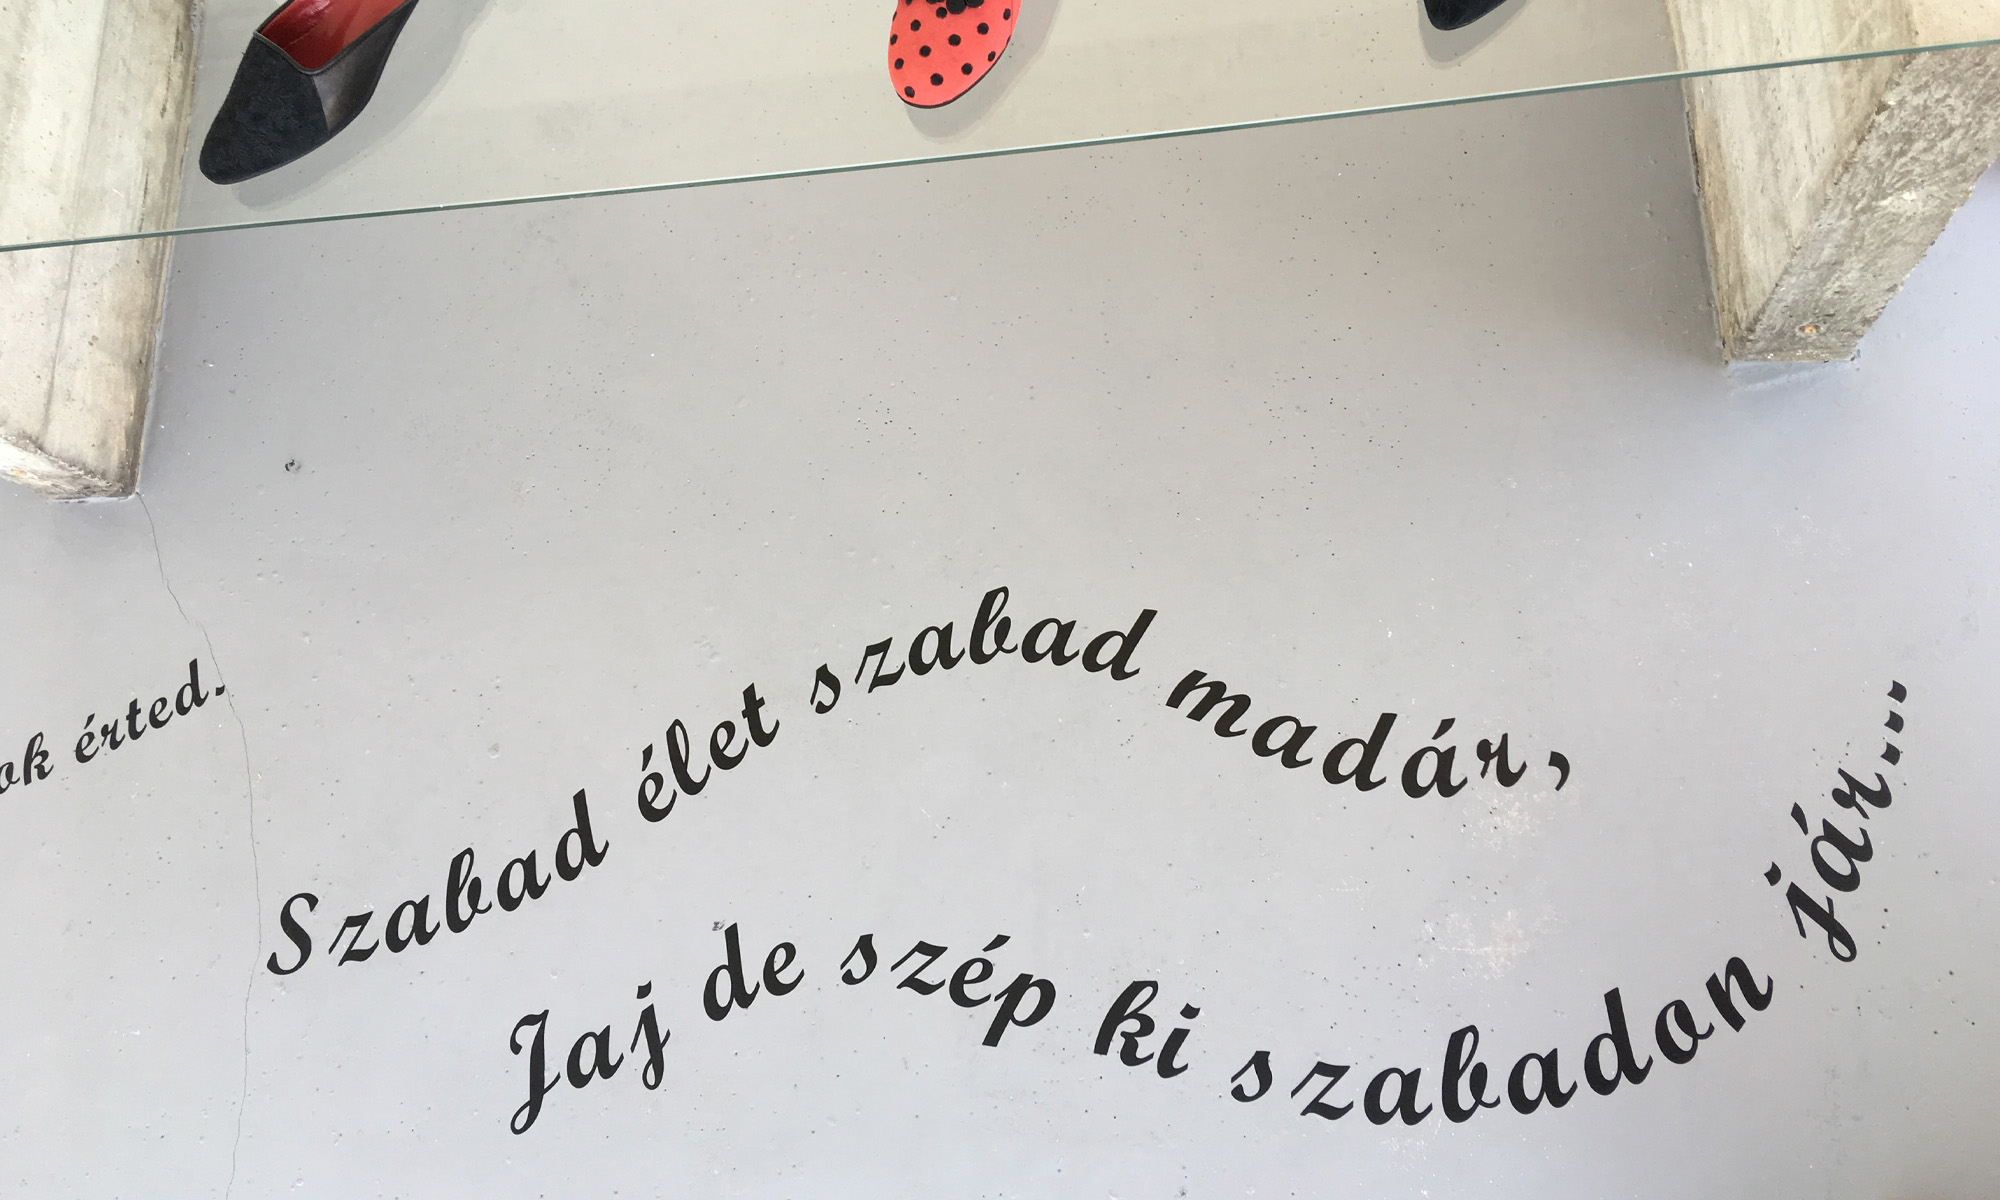 érted.
Szabad élet szabad madár,
Jaj de szép ki szabadon jár...